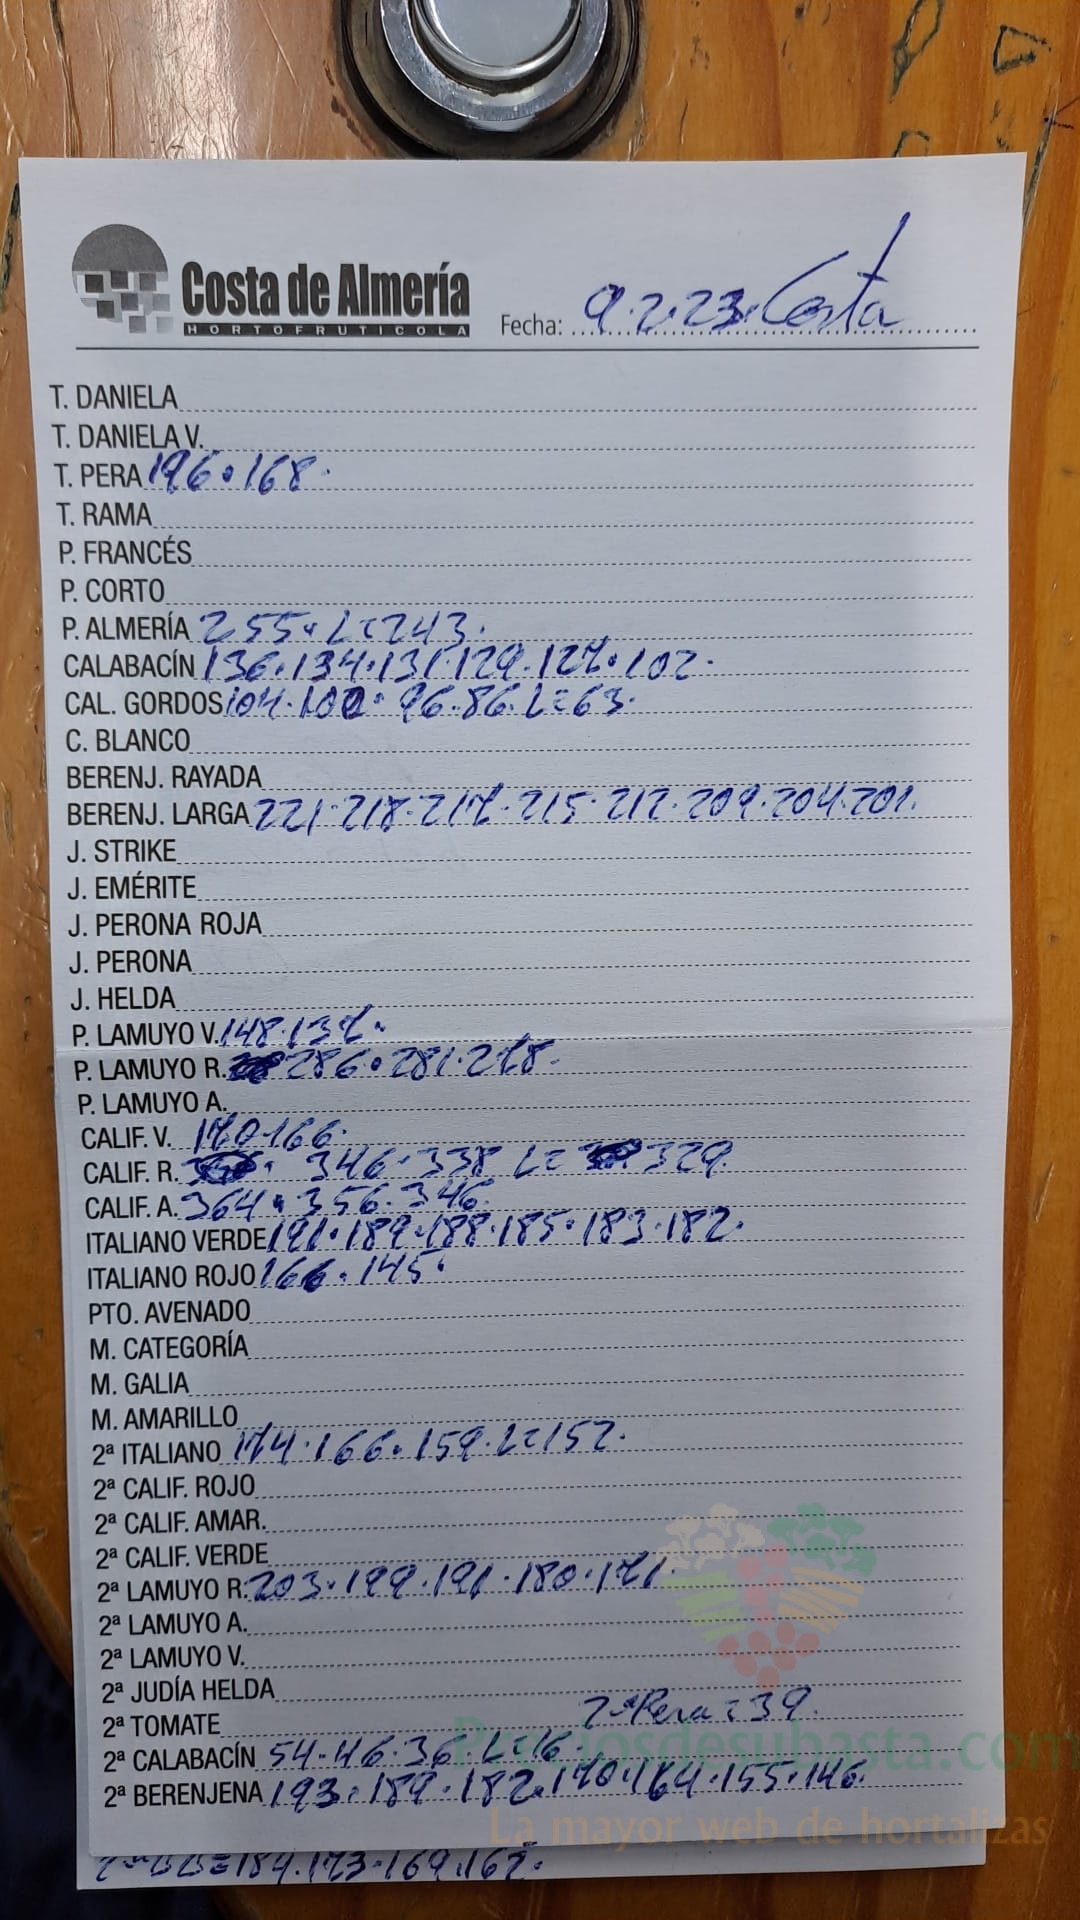 Costa de Almería
HORTOFRUTICOLA
Fecha: 9.2.23. Costa
T. DANIELA
T. DANIELA V.
T. PERA 196.168.
T. RAMA
P. FRANCÉS
P. CORTO
P. ALMERÍA 255. L=243.
CALABACÍN 136.134.131.129.127.102.
CAL. GORDOS 104.100. 96.86. L=63.
C. BLANCO
BERENJ. RAYADA
BERENJ. LARGA 221.218.217.215.212.209.204.201.
J. STRIKE
J. EMÉRITE
J. PERONA ROJA
J. PERONA
J. HELDA
P. LAMUYO V. 148.137.
P. LAMUYO R. 286.281.278.
P. LAMUYO A.
CALIF. V. 170.166.
CALIF. R. 346.338 L= 329.
CALIF. A. 364.356.346.
ITALIANO VERDE 191.189.188.185.183.182.
ITALIANO ROJO 166.145.
PTO. AVENADO
M. CATEGORÍA
M. GALIA
M. AMARILLO
2ª ITALIANO 174.166.159. L=152.
2ª CALIF. ROJO
2ª CALIF. AMAR.
2ª CALIF. VERDE
2ª LAMUYO R. 203.199.191.180.171.
2ª LAMUYO A.
2ª LAMUYO V.
2ª JUDÍA HELDA
2ª TOMATE 2ª Pera = 39.
2ª CALABACÍN 54.46.36. L=16.
2ª BERENJENA 193.189.182.170.164.155.146.
184.173.169.162.
Preciosdesubasta.com
La mayor web de hortalizas